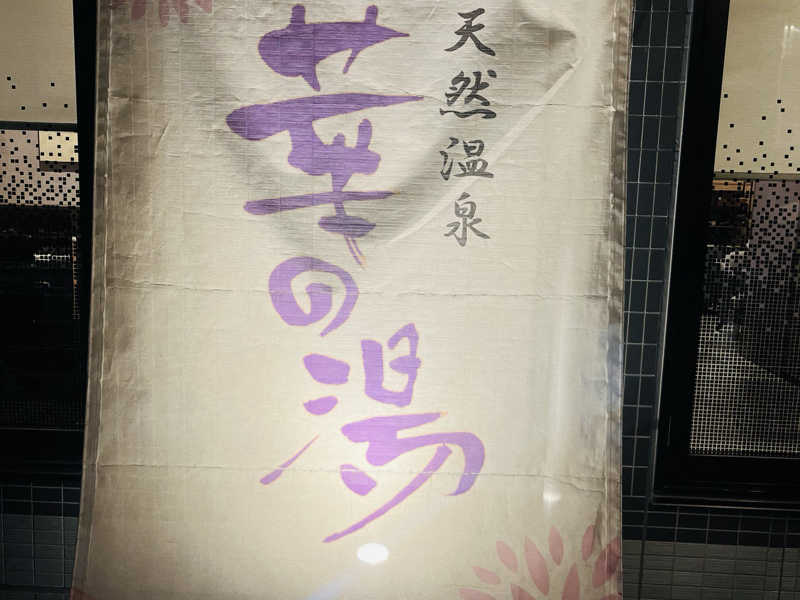 天然温泉
華の湯